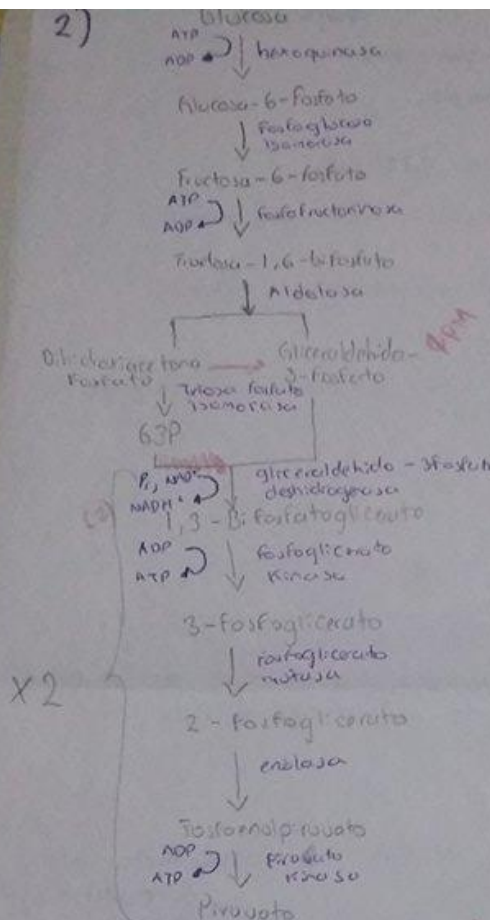 2)
Glucosa
ATP
ADP
hexoquinasa
Glucosa-6-fosfato
fosfoglucosa
isomerasa
Fructosa-6-fosfato
ATP
ADP
fosfofructoquinasa
Fructosa-1,6-bifosfato
Aldolasa
Dihidroxiacetona
fosfato
Gliceraldehido-
3-fosfato
Triosa fosfato
isomerasa
G3P
Pi, NAD+
NADH
gliceraldehido-3fosfato
deshidrogenasa
1,3-Bifosfatoglicerato
ADP
ATP
fosfoglicerato
Kinasa
3-fosfoglicerato
fosfoglicerato
mutasa
x2
2-fosfoglicerato
enolasa
Fosfoenolpiruvato
ADP
ATP
piruvato
Kinasa
Piruvato